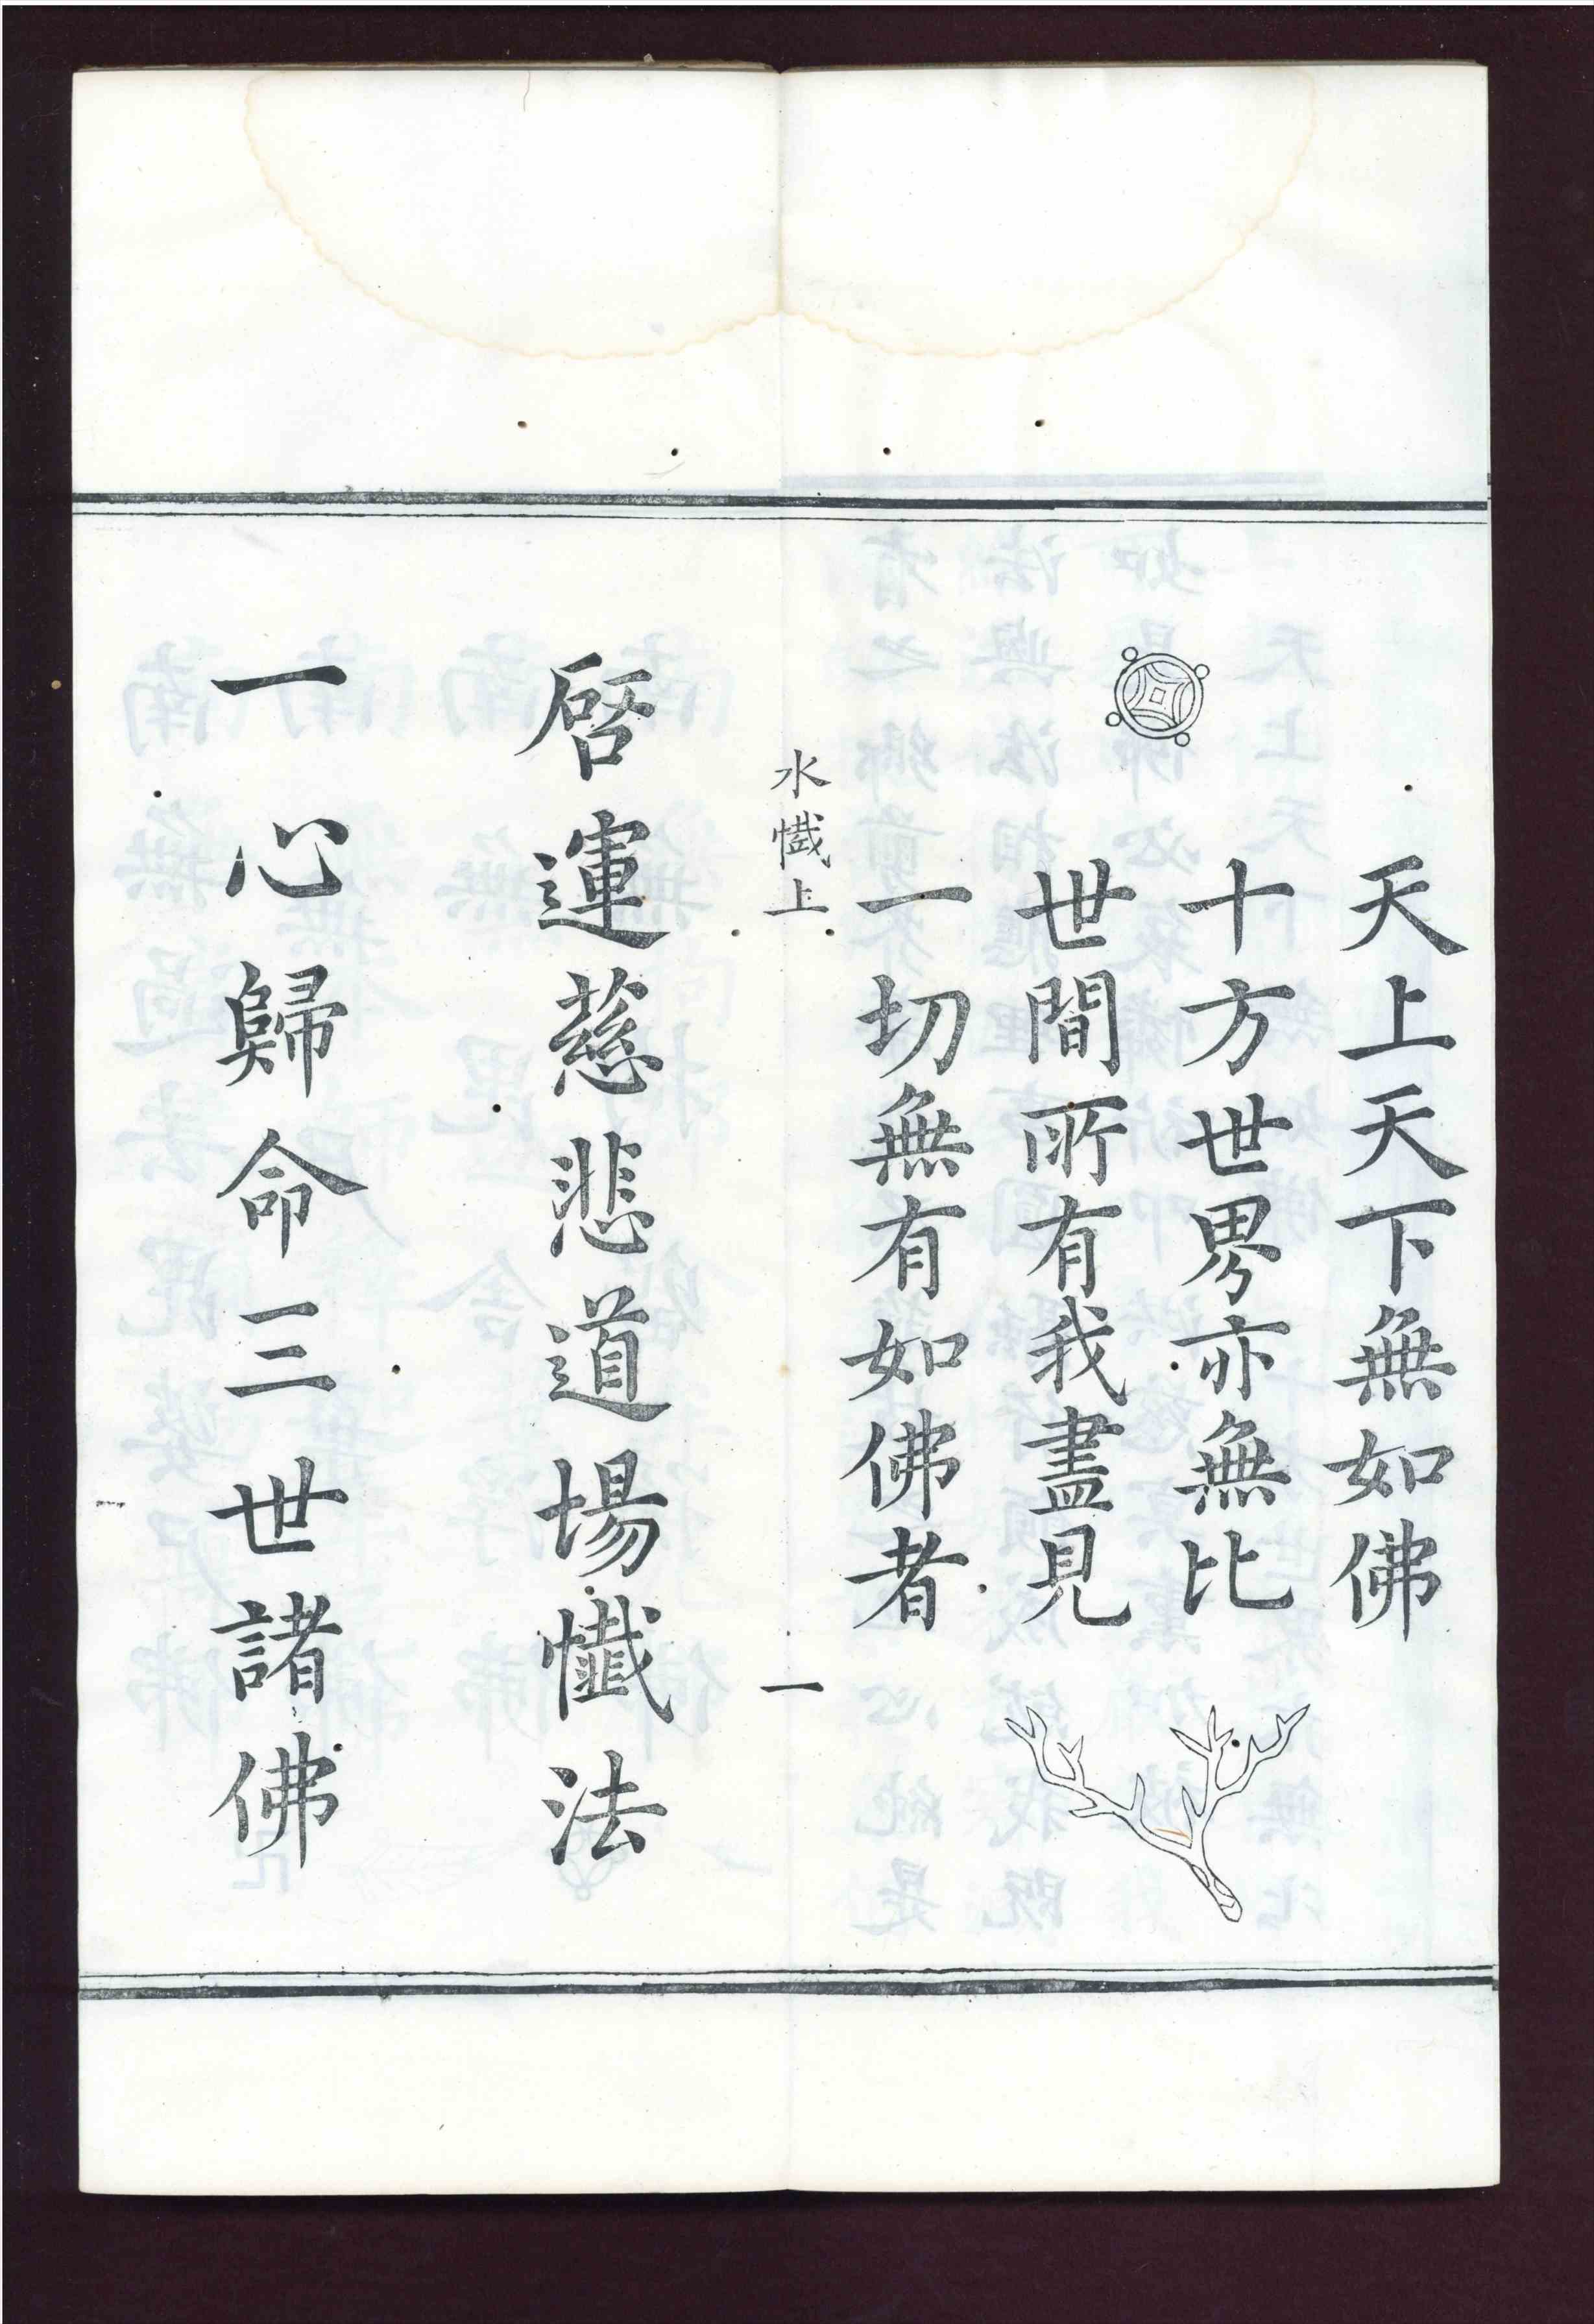 天上天下無如佛
十方世界亦無比
世間所有我盡見
一切無有如佛者
水懴上
一
啓運慈悲道場懺法
一心歸命三世諸佛